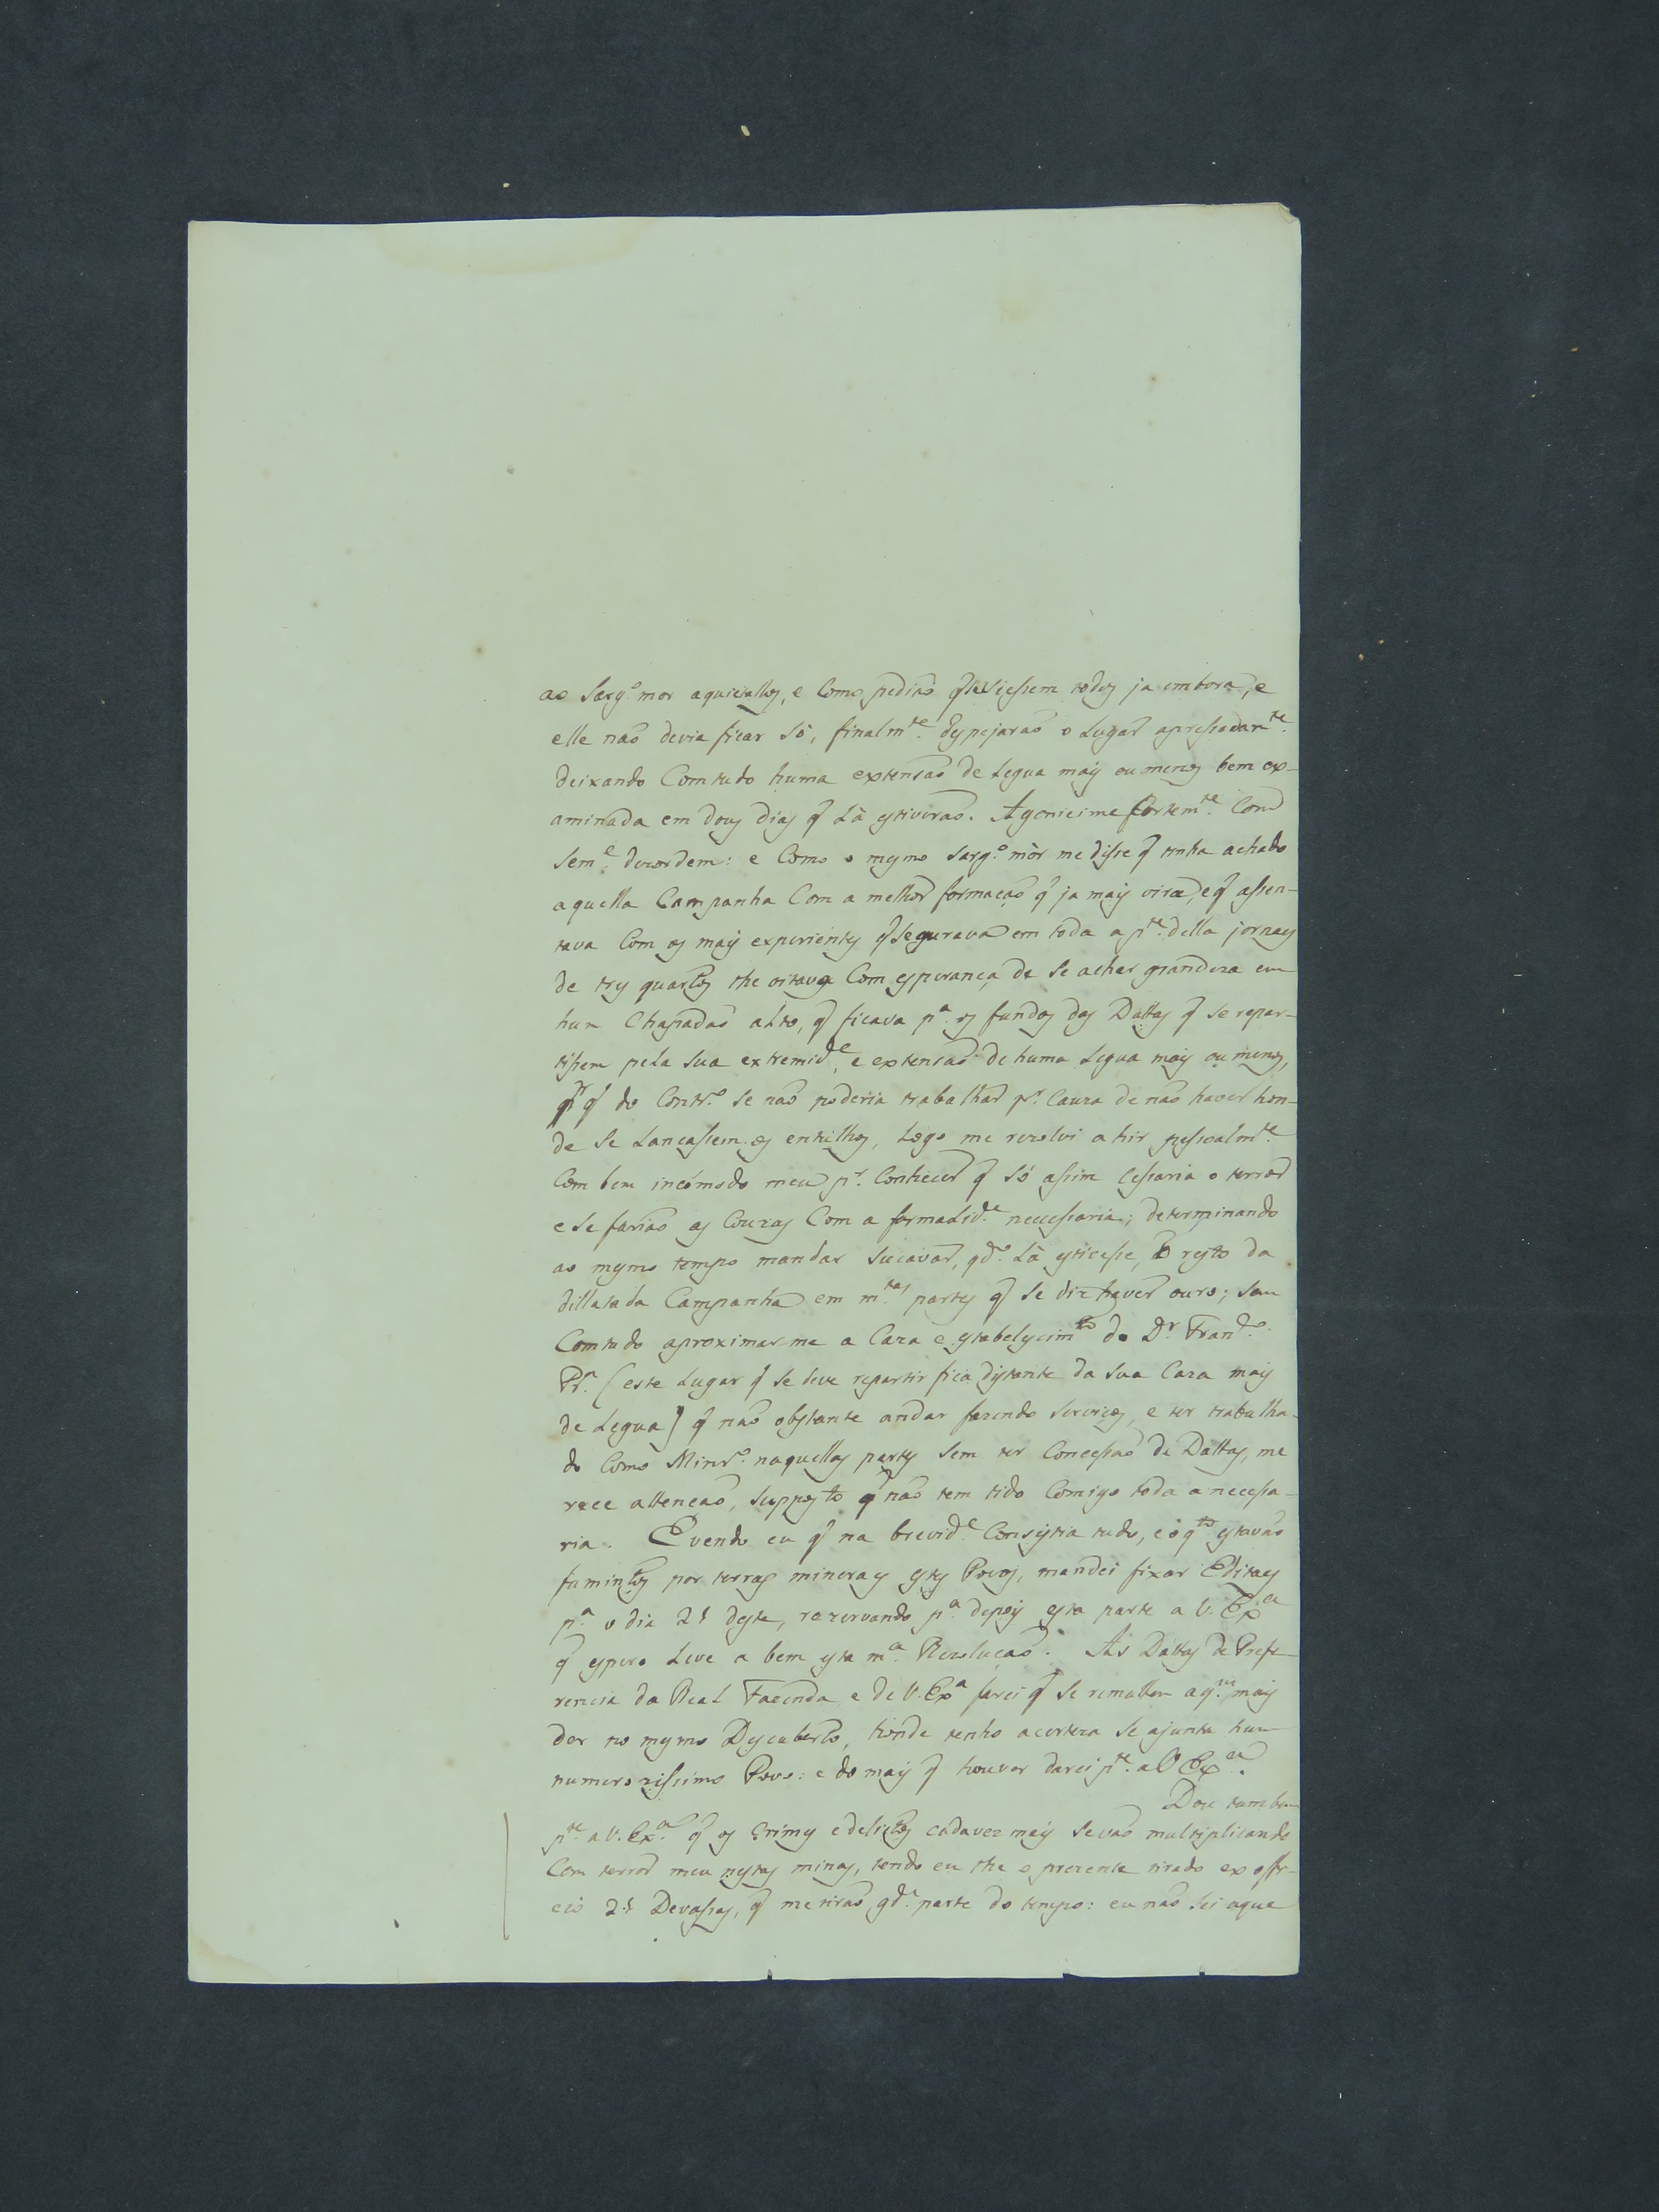 ao Sarg.º mor aquietallos, e Como pedião q̃ se viessem todos ja embora, e
elle não devia ficar Só, finalm.te despejarão o Lugar apressadam.te
deixando Comtudo huma extensão de Legua mais ou menos bem ex-
aminada em dous dias q̃ Lá estiverão. Agoniei me fortem.te Com
Sem.e dezordem: e Como o mesmo Sarg.º mór me disse q̃ tinha achado
aquella Campanha Com a melhor formação q̃ ja mais vira, e q̃ assen-
tava Com os mais experientes q̃ Segurava em toda a p.te della jornaes
de tres quartos the oitava Com esperança de Se achar grandeza em
hum Chapadão alto, q̃ ficava p.ª os fundos das Dattas q̃ Se repar-
tissem pela Sua extremid.e, e extensão de huma Legua mais ou menos,
p.r q̃ do Contr.º Se não poderia trabalhar p.r Cauza de não haver hon-
de Se Lançassem os entulhos, Logo me rezolvi a hir pessoalm.te
Com bem incómodo meu p.r Conhecer q̃ Só assim Cessaria o terror
e Se farião as Couzas Com a formalid.e necessaria; determinando
ao mesmo tempo mandar Sucavar, qd.º Lá estivesse, o resto da
dillatada Campanha em m.tas partes q̃ Se diz haver ouro; Sem
Comtudo aproximar-me a Caza e estabelycim.to do D.r Fran.co
Pr.ª (este Lugar q̃ Se deve repartir fica distante da Sua Caza mais
de Legua) q̃ não obstante andar fazendo Serviços, e ter trabalha-
do Como Minr.º naquellas partes Sem ter Concessão de Dattas, me
rece attenção, Supposto q̃ não tem tido Comigo toda a necessa-
ria. E vendo eu q̃ na brevid.e Consistia tudo, e o q.to estavão
famintos por terras mineraes estes Povos, mandei fixar Editaes
p.ª o dia 21 deste, rezervando p.ª depois esta parte a V. Ex.ª
q̃ espero Leve a bem esta m.ª Rezolução. As Dattas de Prefe
rencia da Real Fazenda e de V. Ex.ª farei q̃ Se rematem a q.m mais
der no mesmo Descuberto, honde tenho a certeza Se ajunta hum
numerozissimo Povo: e do mais q̃ houver darei p.te a V. Ex.ª
Dou tambem
p.te a V. Ex.ª q̃ os Crimes e delictos cada vez mais Se vão multiplicando
Com terror meu nestas minas, tendo eu the o prezente tirado ex offi-
cio 21 Devassas, q̃ me tirão gd.e parte do tempo: eu não Sei a que